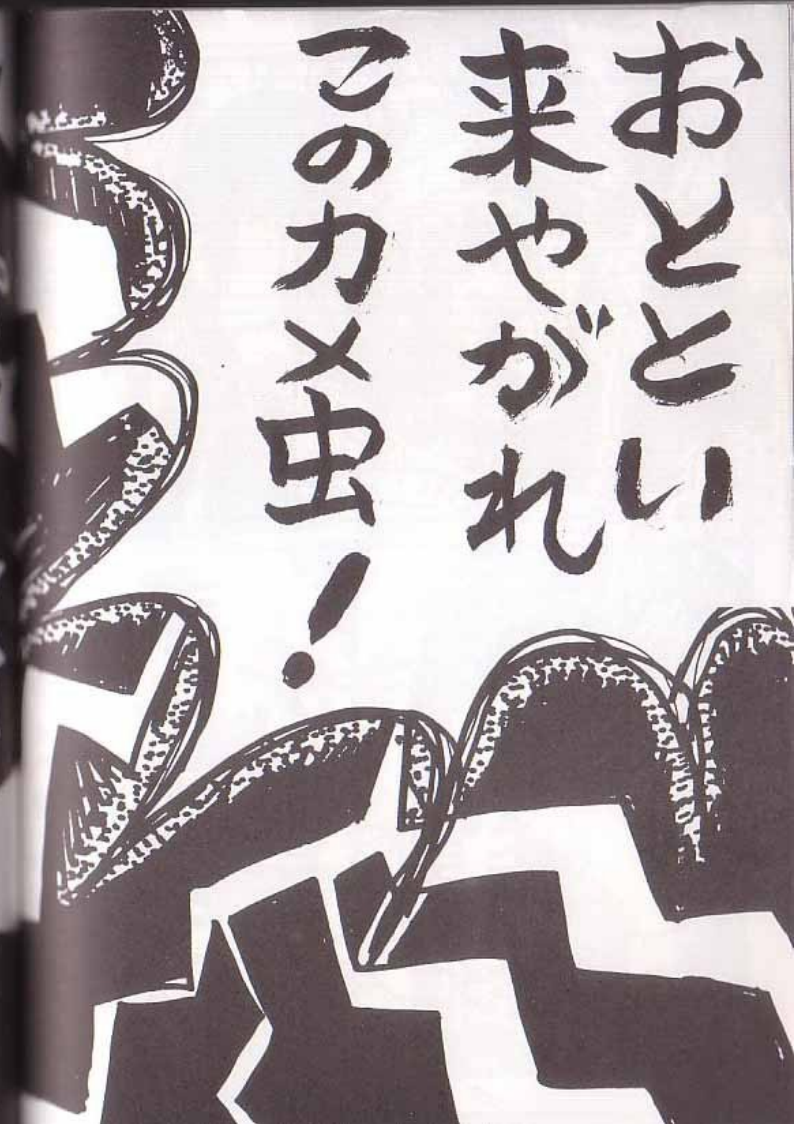 おととい
来やがれ
このカメ虫!